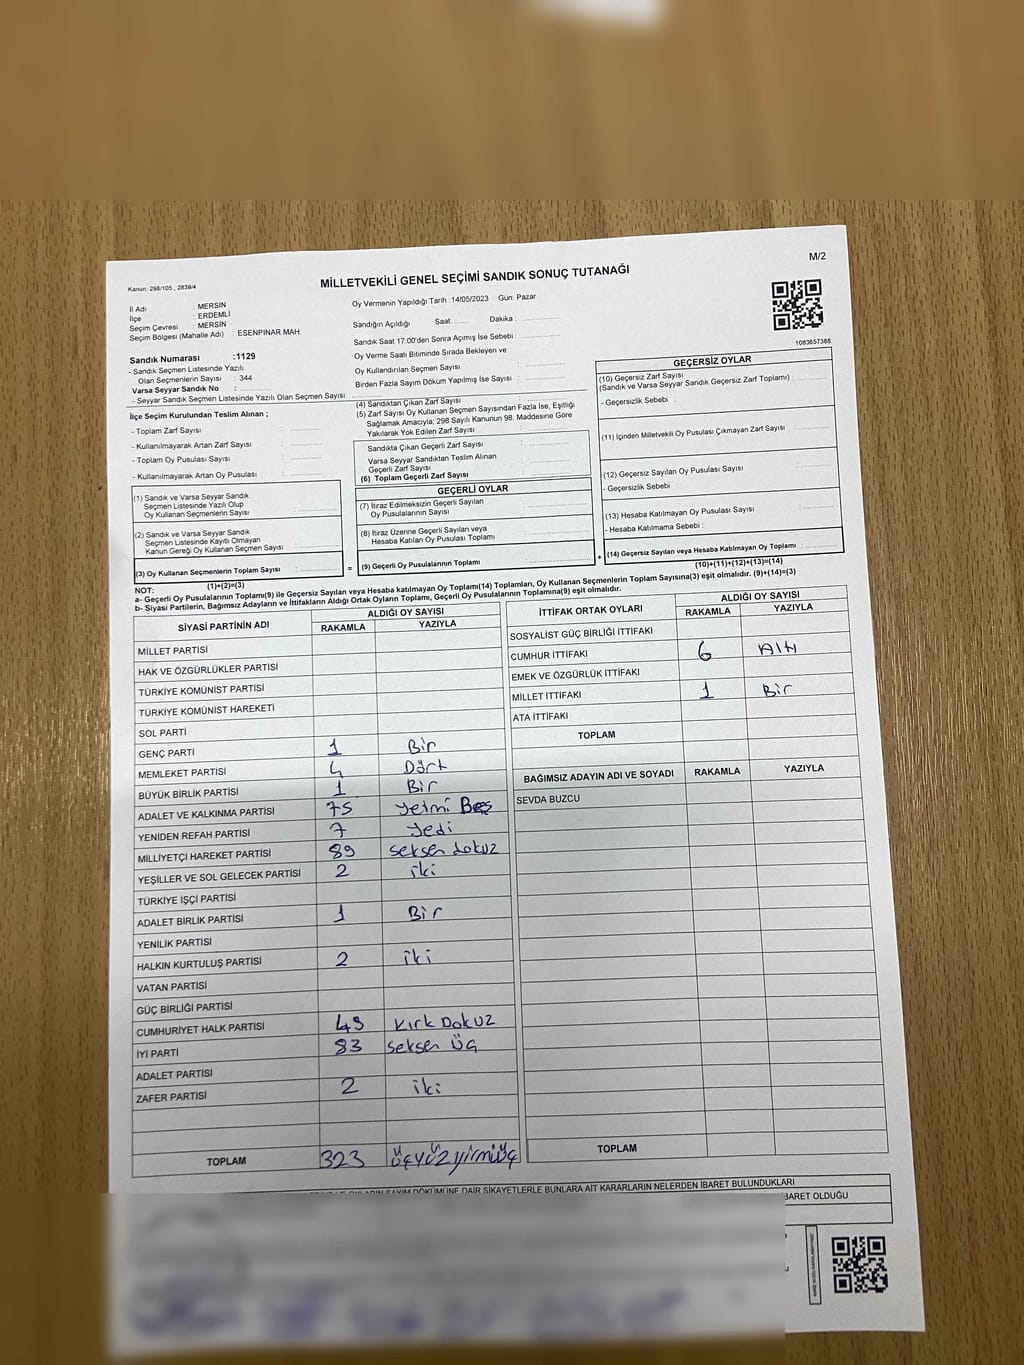 M/2
MİLLETVEKİLİ GENEL SEÇİMİ SANDIK SONUÇ TUTANAĞI
Kanun: 298/105 , 2839/4
İl Adı : MERSİN
İlçe : ERDEMLİ
Seçim Çevresi : MERSİN
Seçim Bölgesi (Mahalle Adı) : ESENPINAR MAH.
Sandık Numarası :1129
- Sandık Seçmen Listesinde Yazılı
Olan Seçmenlerin Sayısı : 344
Varsa Seyyar Sandık No :
- Seyyar Sandık Seçmen Listesinde Yazılı Olan Seçmen Sayısı:
Oy Vermenin Yapıldığı Tarih :14/05/2023 Gün: Pazar
Sandığın Açıldığı Saat: Dakika :
Sandık Saat 17:00'den Sonra Açımış İse Sebebi :
Oy Verme Saati Bitiminde Sırada Bekleyen ve
Oy Kullandırılan Seçmen Sayısı :
Birden Fazla Sayım Döküm Yapılmış İse Sayısı :
1083657388
İlçe Seçim Kurulundan Teslim Alınan ;
- Toplam Zarf Sayısı :
- Kullanılmayarak Artan Zarf Sayısı :
- Toplam Oy Pusulası Sayısı :
- Kullanılmayarak Artan Oy Pusulası :
(1) Sandık ve Varsa Seyyar Sandık
Seçmen Listesinde Yazılı Olup
Oy Kullanan Seçmenlerin Sayısı :
(2) Sandık ve Varsa Seyyar Sandık
Seçmen Listesinde Kayıtlı Olmayan
Kanun Gereği Oy Kullanan Seçmen Sayısı :
(3) Oy Kullanan Seçmenlerin Toplam Sayısı :
(1)+(2)=(3)
(4) Sandıktan Çıkan Zarf Sayısı :
(5) Zarf Sayısı Oy Kullanan Seçmen Sayısından Fazla İse, Eşitliği
Sağlamak Amacıyla; 298 Sayılı Kanunun 98. Maddesine Göre
Yakılarak Yok Edilen Zarf Sayısı :
Sandıkta Çıkan Geçerli Zarf Sayısı :
Varsa Seyyar Sandıktan Teslim Alınan
Geçerli Zarf Sayısı :
(6) Toplam Geçerli Zarf Sayısı :
GEÇERLİ OYLAR
(7) İtiraz Edilmeksizin Geçerli Sayılan
Oy Pusulalarının Sayısı :
(8) İtiraz Üzerine Geçerli Sayılan veya
Hesaba Katılan Oy Pusulası Toplamı :
= (9) Geçerli Oy Pusulalarının Toplamı : +
GEÇERSİZ OYLAR
(10) Geçersiz Zarf Sayısı
(Sandık ve Varsa Seyyar Sandık Geçersiz Zarf Toplamı) :
- Geçersizlik Sebebi :
(11) İçinden Milletvekili Oy Pusulası Çıkmayan Zarf Sayısı :
(12) Geçersiz Sayılan Oy Pusulası Sayısı :
- Geçersizlik Sebebi :
(13) Hesaba Katılmayan Oy Pusulası Sayısı :
- Hesaba Katılmama Sebebi :
(14) Geçersiz Sayılan veya Hesaba Katılmayan Oy Toplamı :
(10)+(11)+(12)+(13)=(14)
NOT:
a- Geçerli Oy Pusulalarının Toplamı(9) ile Geçersiz Sayılan veya Hesaba katılmayan Oy Toplamı(14) Toplamları, Oy Kullanan Seçmenlerin Toplam Sayısına(3) eşit olmalıdır. (9)+(14)=(3)
b- Siyasi Partilerin, Bağımsız Adayların ve İttifakların Aldığı Ortak Oyların Toplamı, Geçerli Oy Pusulalarının Toplamına(9) eşit olmalıdır.
SİYASİ PARTİNİN ADI ALDIĞI OY SAYISI
RAKAMLA YAZIYLA
MİLLET PARTİSİ
HAK VE ÖZGÜRLÜKLER PARTİSİ
TÜRKİYE KOMÜNİST PARTİSİ
TÜRKİYE KOMÜNİST HAREKETİ
SOL PARTİ
GENÇ PARTİ 1 Bir
MEMLEKET PARTİSİ 4 Dört
BÜYÜK BİRLİK PARTİSİ 1 Bir
ADALET VE KALKINMA PARTİSİ 75 Yetmi Beş
YENİDEN REFAH PARTİSİ 7 Yedi
MİLLİYETÇİ HAREKET PARTİSİ 89 Seksen dokuz
YEŞİLLER VE SOL GELECEK PARTİSİ 2 iki
TÜRKİYE İŞÇİ PARTİSİ
ADALET BİRLİK PARTİSİ 1 Bir
YENİLİK PARTİSİ
HALKIN KURTULUŞ PARTİSİ 2 iki
VATAN PARTİSİ
GÜÇ BİRLİĞİ PARTİSİ
CUMHURİYET HALK PARTİSİ 49 Kırk Dokuz
İYİ PARTİ 83 Seksen Üç
ADALET PARTİSİ
ZAFER PARTİSİ 2 iki
TOPLAM 323 üçyüzyirmiüç
İTTİFAK ORTAK OYLARI ALDIĞI OY SAYISI
RAKAMLA YAZIYLA
SOSYALİST GÜÇ BİRLİĞİ İTTİFAKI
CUMHUR İTTİFAKI 6 Altı
EMEK VE ÖZGÜRLÜK İTTİFAKI
MİLLET İTTİFAKI 1 Bir
ATA İTTİFAKI
TOPLAM
BAĞIMSIZ ADAYIN ADI VE SOYADI RAKAMLA YAZIYLA
SEVDA BUZCU
TOPLAM
SAYIM DÖKÜMÜNE DAİR ŞİKAYETLERLE BUNLARA AİT KARARLARIN NELERDEN İBARET BULUNDUKLARI
İBARET OLDUĞU